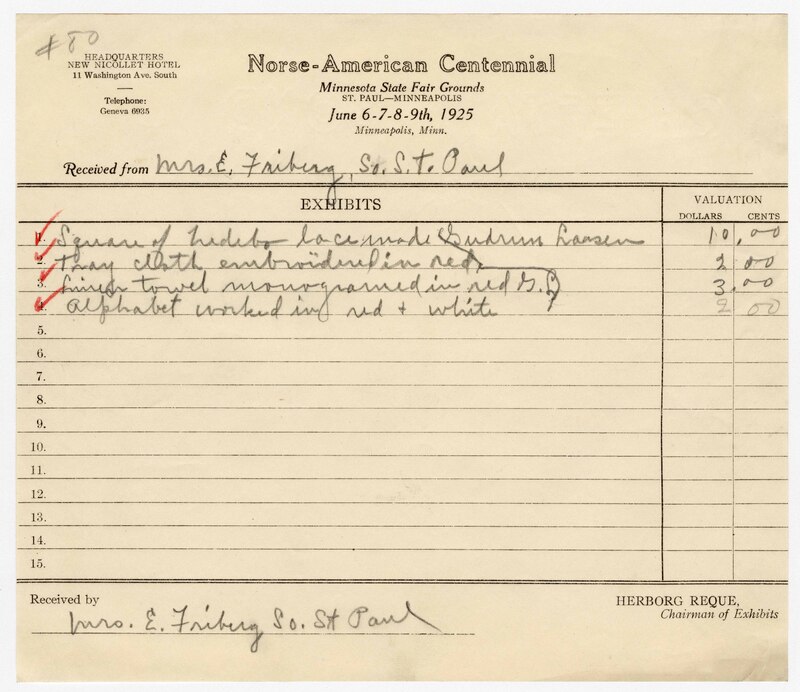 #80
HEADQUARTERS
NEW NICOLLET HOTEL
11 Washington Ave. South
Telephone:
Geneva 6935
Norse-American Centennial
Minnesota State Fair Grounds
ST. PAUL—MINNEAPOLIS
June 6-7-8-9th, 1925
Minneapolis, Minn.
Received from Mrs. E. Friberg, So. S.t. Paul
EXHIBITS
VALUATION
DOLLARS CENTS
1. Square of hedebo lace made Gudrun Laasen 10.00
2. Tray cloth embroidered in red 2 00
3. Linen towel monogramed in red G.L 3.00
4. Alphabet worked in red + white 2 00
5.
6.
7.
8.
9.
10.
11.
12.
13.
14.
15.
Received by
Mrs. E. Friberg So. St Paul
HERBORG REQUE,
Chairman of Exhibits